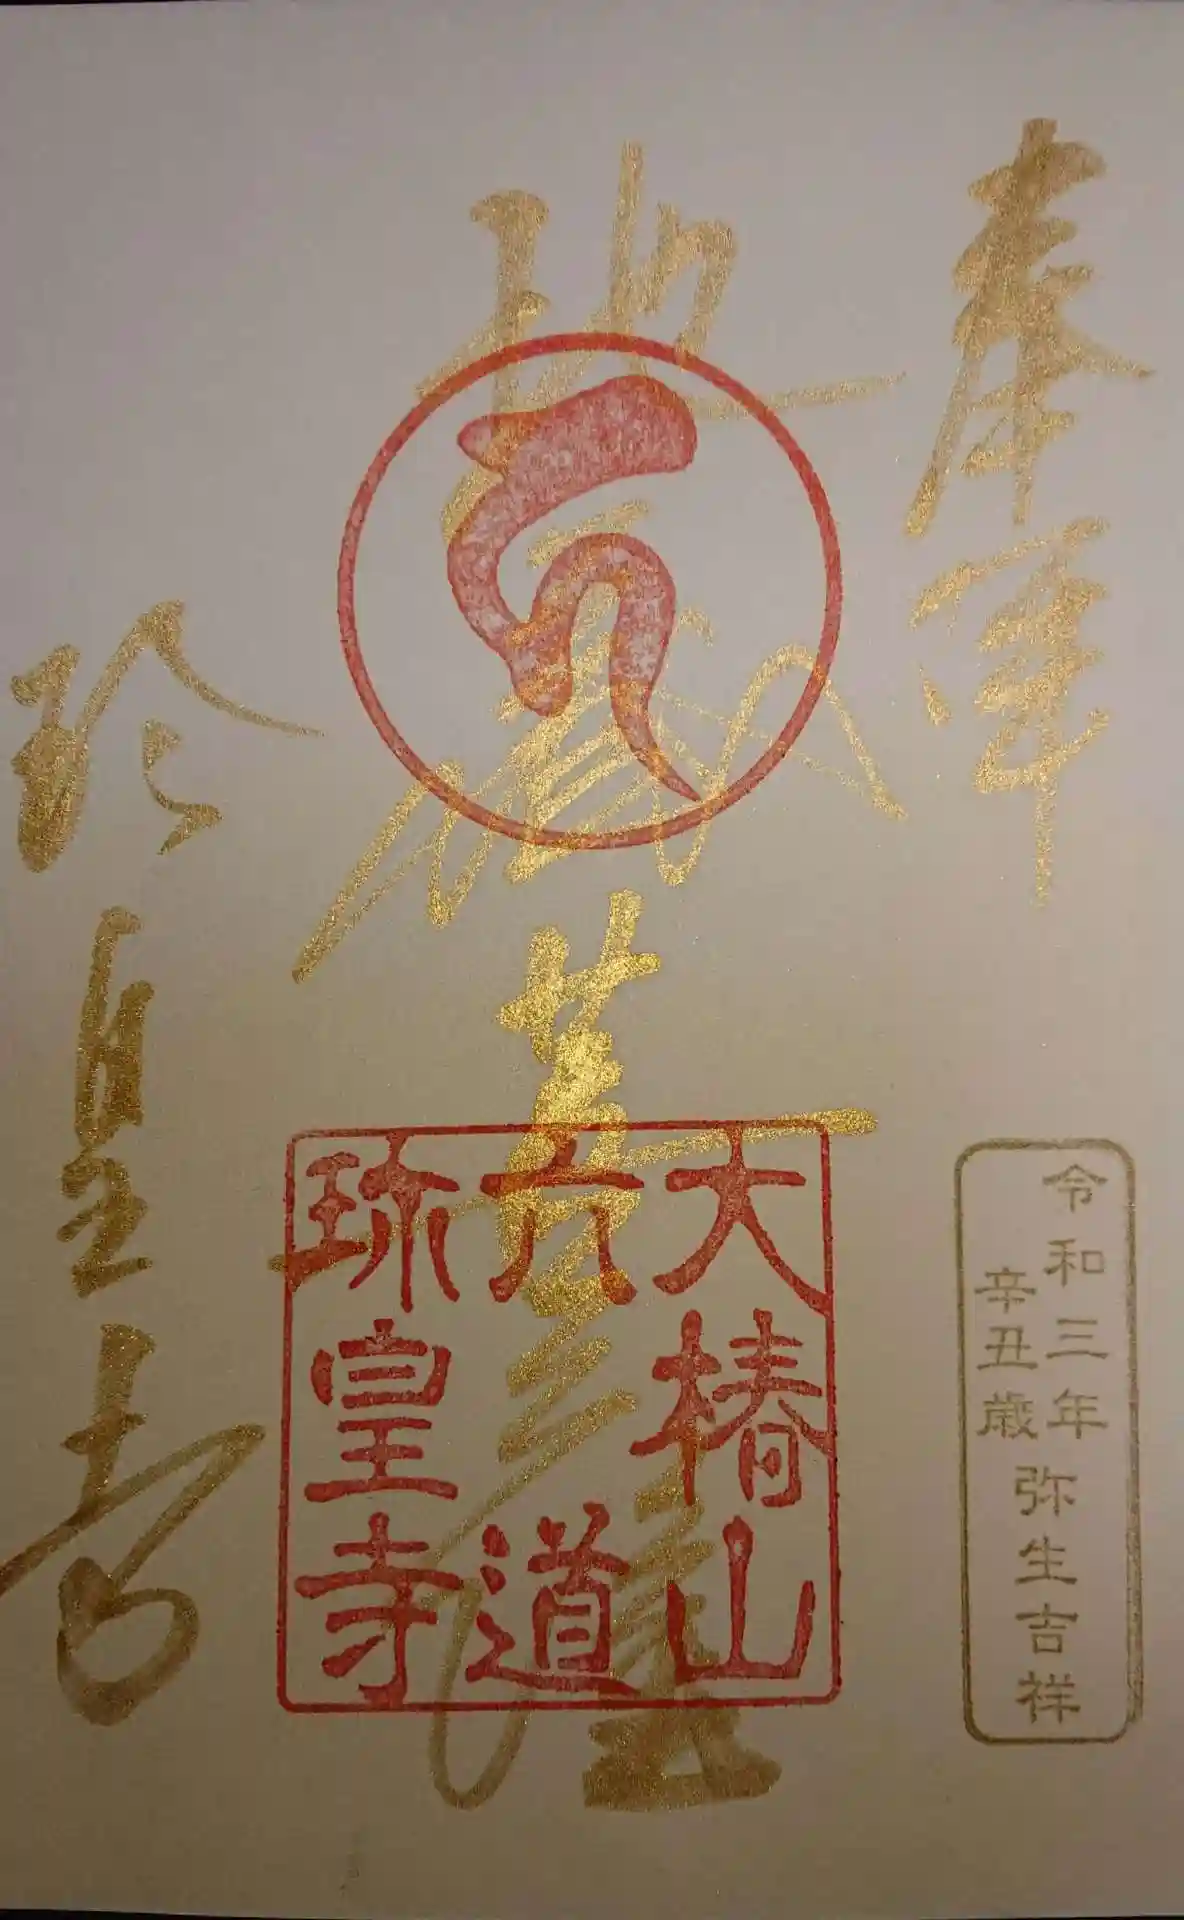 奉拝
令和三年
辛丑歳
弥生吉祥
地蔵菩薩
大椿山
六道
珍皇寺
珍皇寺